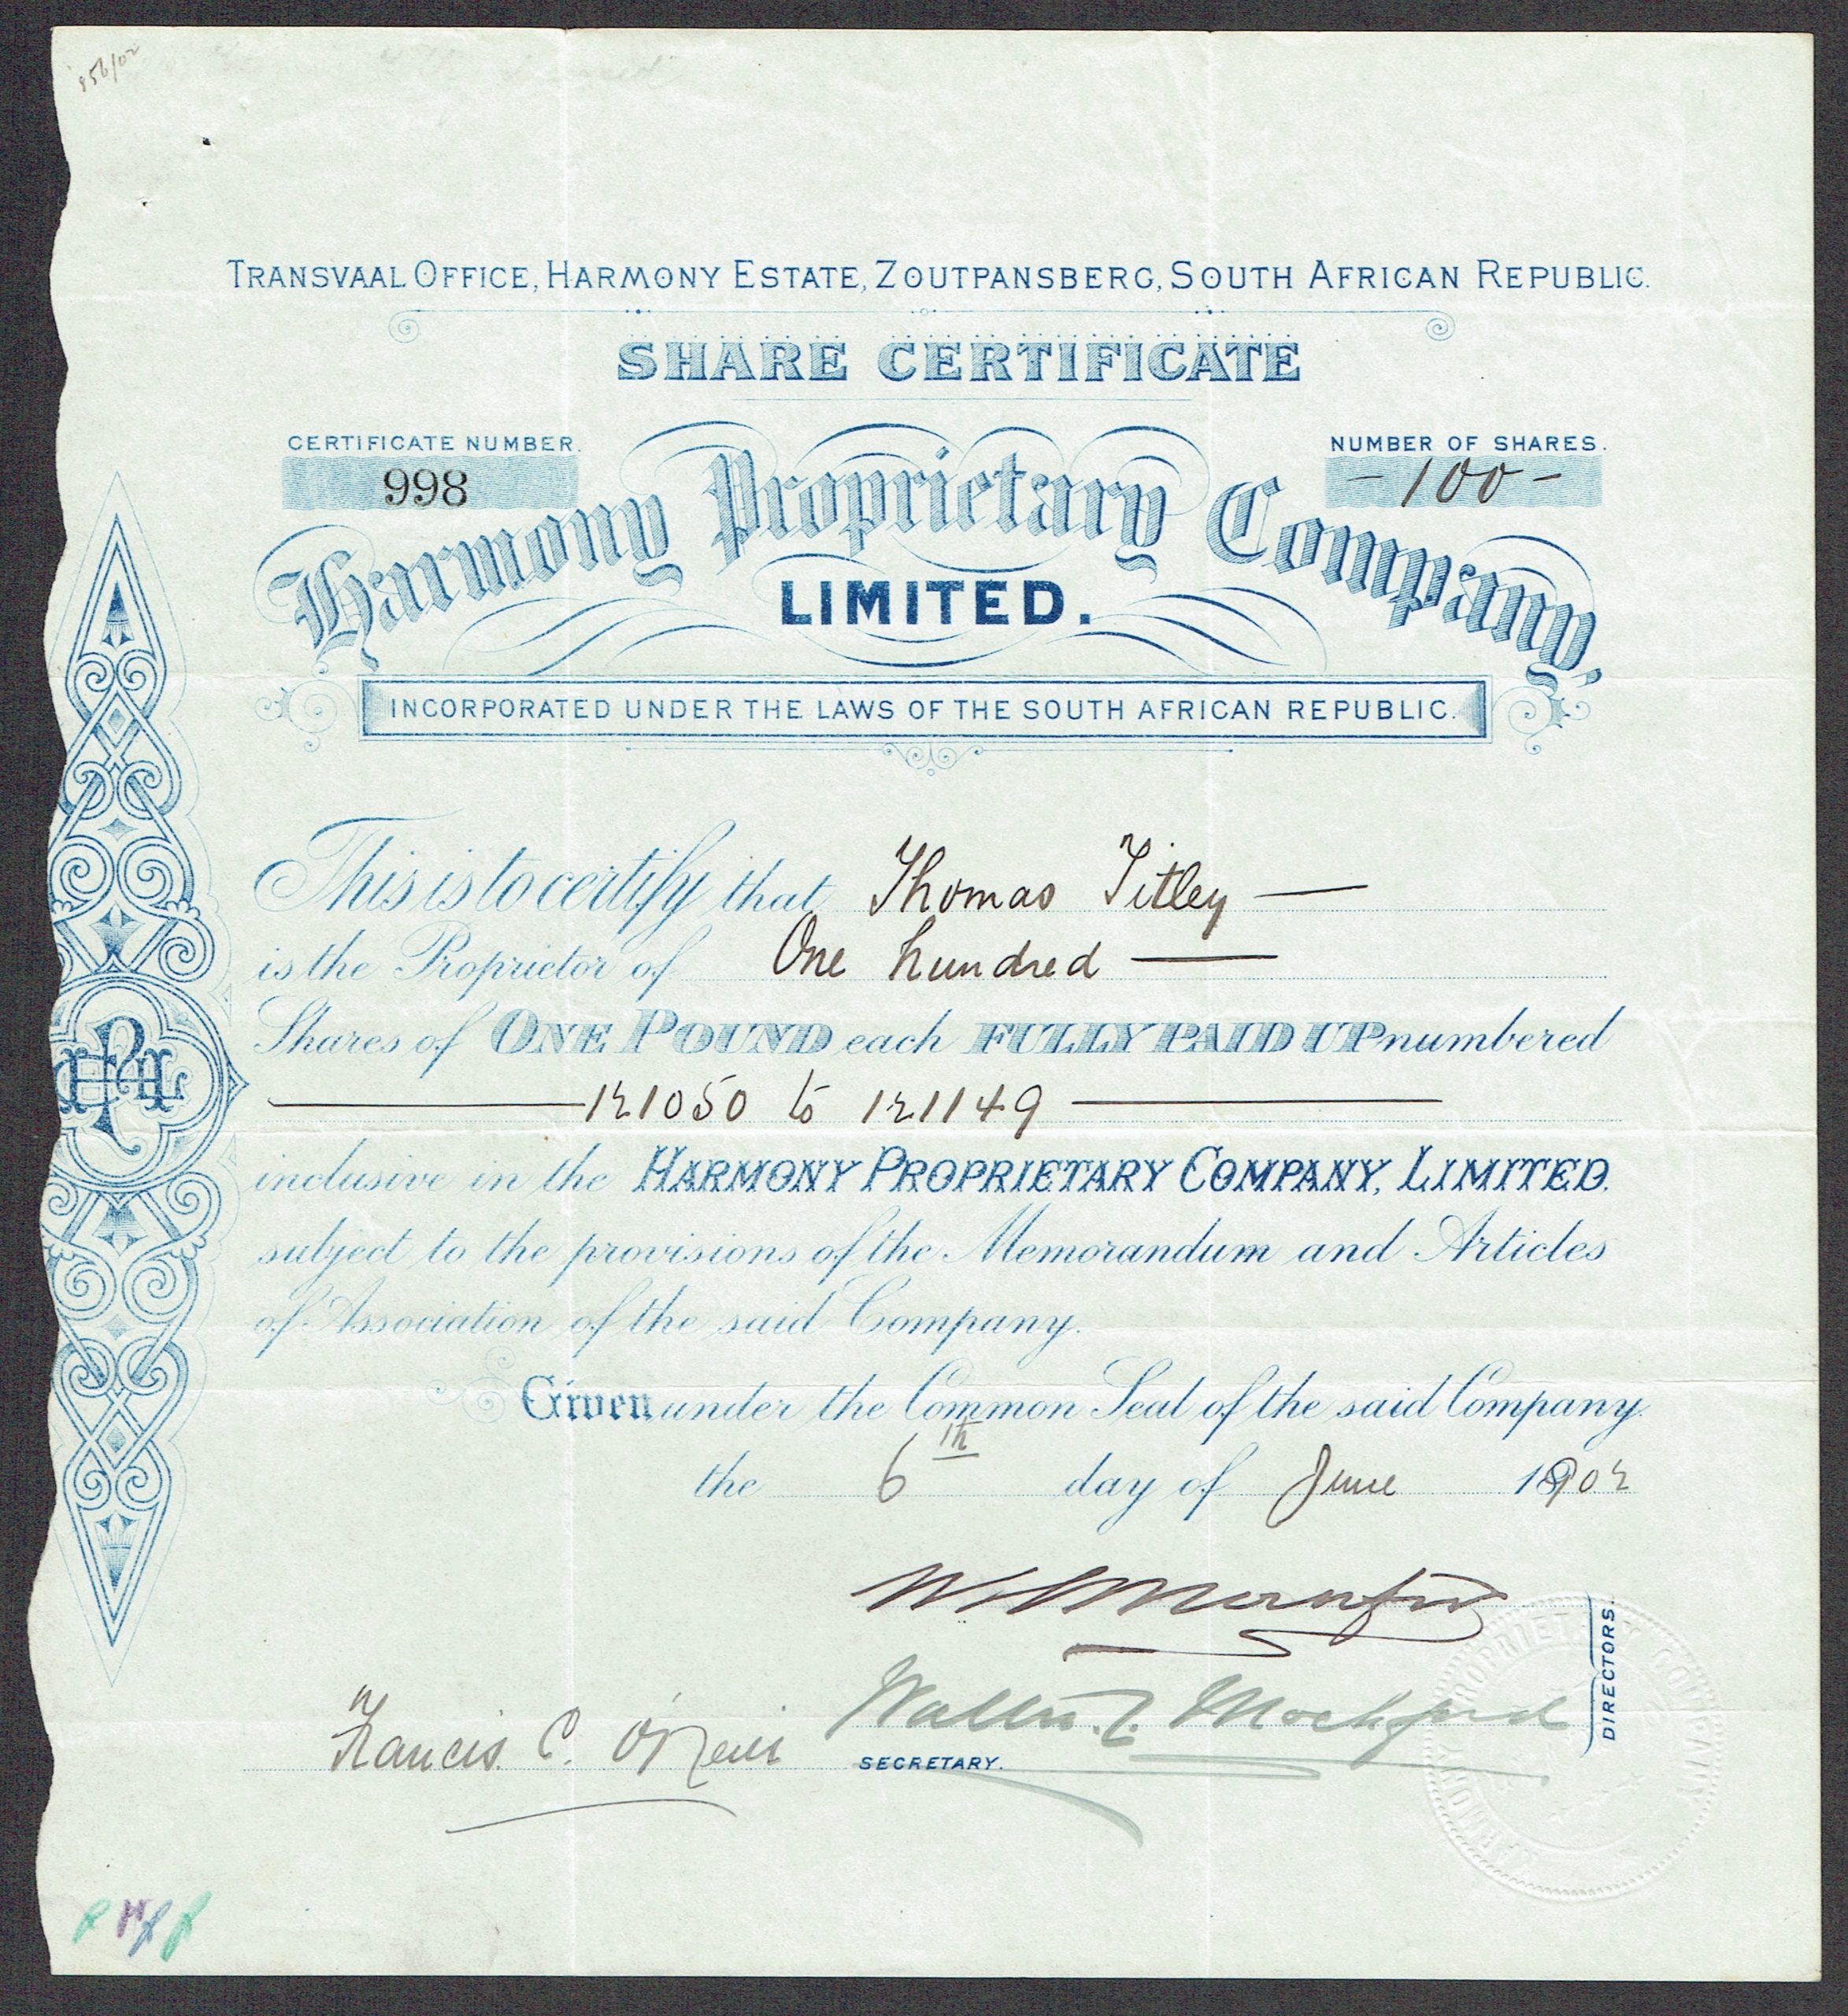 856/02
TRANSVAAL OFFICE, HARMONY ESTATE, ZOUTPANSBERG, SOUTH AFRICAN REPUBLIC.
SHARE CERTIFICATE
CERTIFICATE NUMBER.
998
NUMBER OF SHARES.
- 100 -
Harmony Proprietary Company,
LIMITED.
INCORPORATED UNDER THE LAWS OF THE SOUTH AFRICAN REPUBLIC.
This is to certify that Thomas Titley —
is the Proprietor of One hundred —
Shares of ONE POUND each FULLY PAID UP numbered
— 121050 to 121149 —
inclusive in the HARMONY PROPRIETARY COMPANY, LIMITED.
subject to the provisions of the Memorandum and Articles
of Association of the said Company.
Given under the Common Seal of the said Company.
the 6th day of June 1902
DIRECTORS.
Francis C. O'Neill
SECRETARY.
HARMONY PROPRIETARY COMPANY